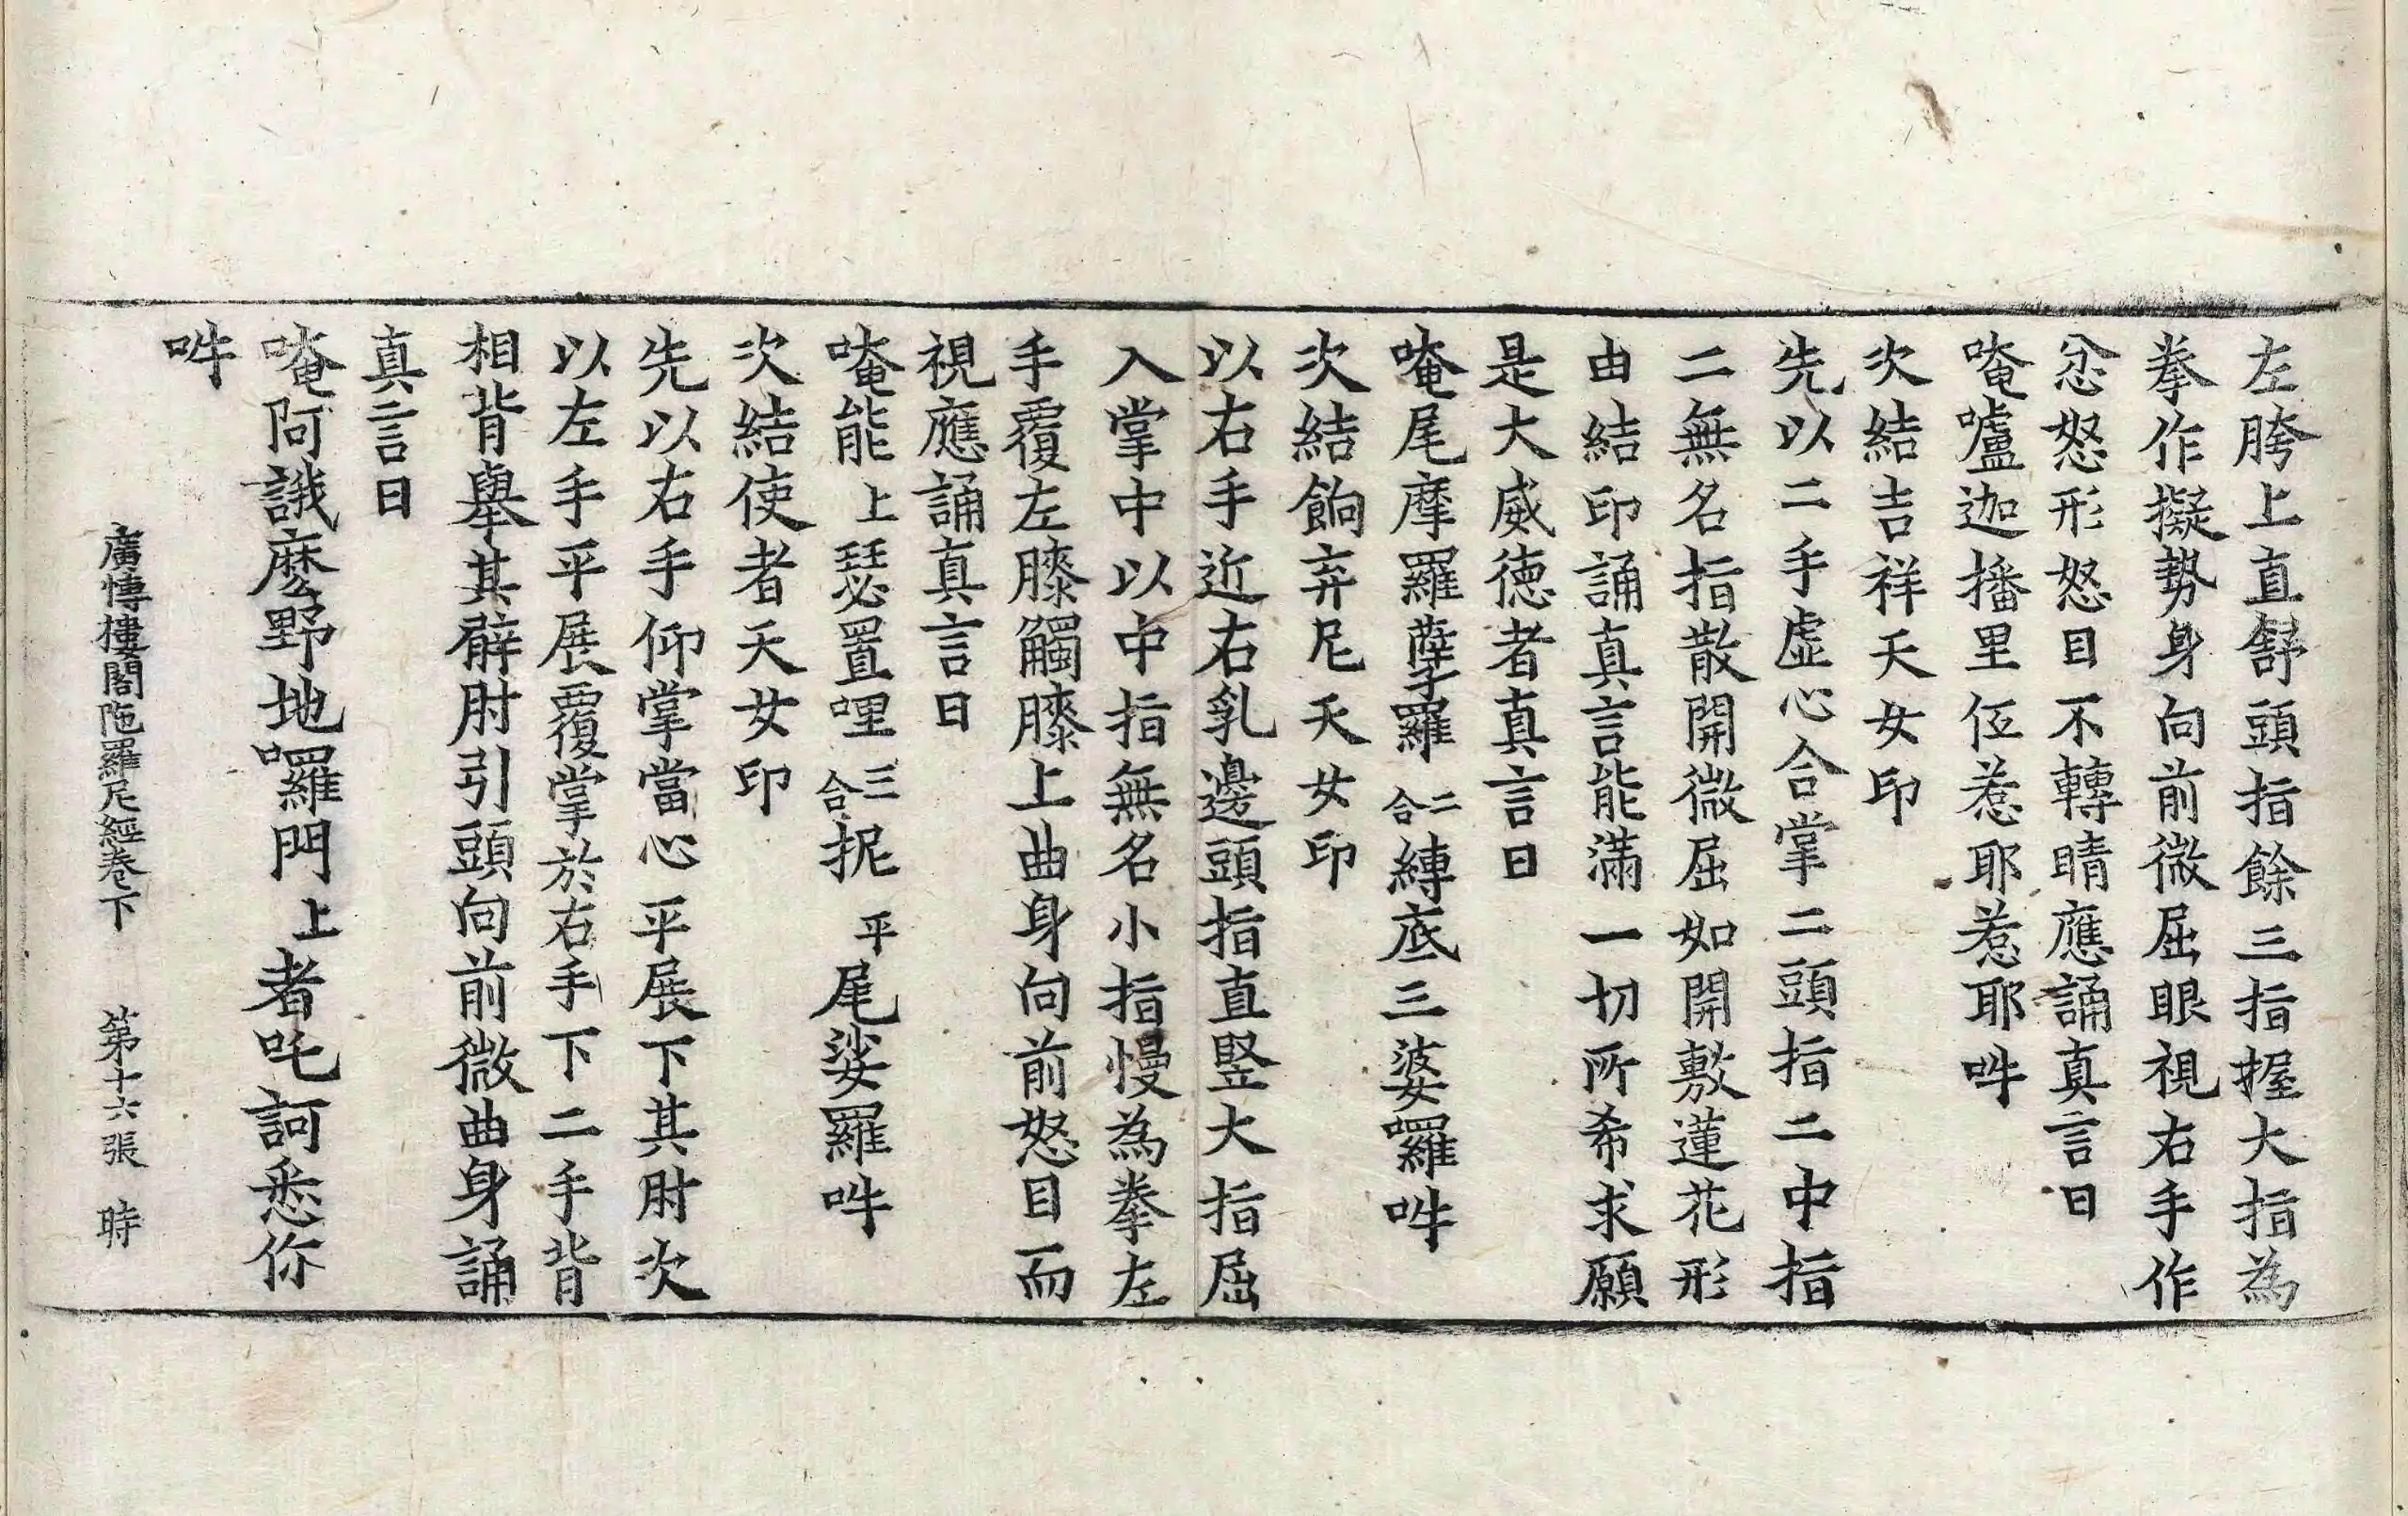 左胯上直舒頭指餘三指握大指為
拳作擬勢身向前微屈眼視右手作
忿怒形怒目不轉睛應誦真言曰
唵嚧迦播里伍惹耶惹耶吽
次結吉祥天女印
先以二手虛心合掌二頭指二中指
二無名指散開微屈如開敷蓮花形
由結印誦真言能滿一切所希求願
是大威德者真言曰
唵尾摩羅孽羅二合縛底三婆囉吽
次結餉弃尼天女印
以右手近右乳邊頭指直竪大指屈
入掌中以中指無名小指慢為拳左
手覆左膝觸膝上曲身向前怒目而
視應誦真言曰
唵能上瑟置哩三合抳平尾娑羅吽
次結使者天女印
先以右手仰掌當心平展下其肘次
以左手平展覆掌於右手下二手背
相背舉其臂肘引頭向前微曲身誦
真言曰
唵阿誐麼野地囉門上者吒訶悉你
吽
廣慱樓閣陁羅尼經卷下 第十六張 時